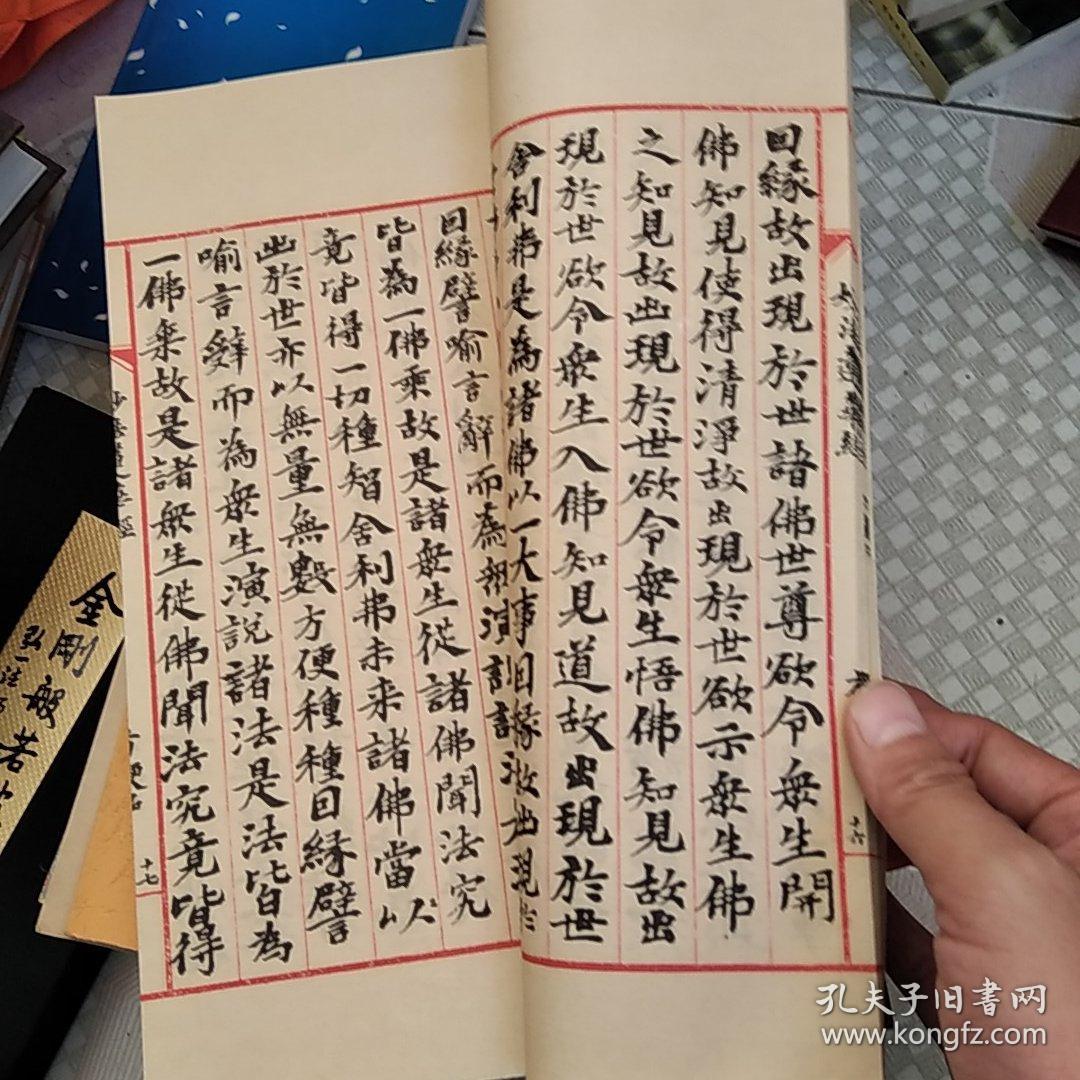 囙緣故出現於世諸佛世尊欲令眾生開
佛知見使得清淨故出現於世欲示眾生佛
之知見故出現於世欲令眾生悟佛知見故出
現於世欲令眾生入佛知見道故出現於世
舍利弗是為諸佛以一大事囙緣故出現於
妙法蓮華經
十六
囙緣譬喻言辭而為演
皆為一佛乘故是諸眾生從諸佛聞法究
竟皆得一切種智舍利弗未來諸佛當以
出於世亦以無量無數方便種種囙緣譬
喻言辭而為眾生演說諸法是法皆為
一佛乘故是諸眾生從佛聞法究竟皆得
方便品
十七
金剛般若
弘一法
孔夫子旧書网
www.kongfz.com